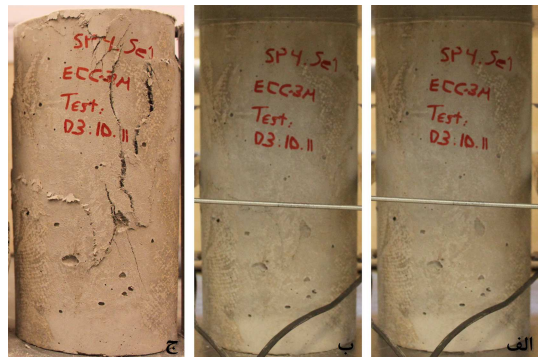 SP4.Se1
ECC-3M
Test:
03.10.11
ج
SP4.Se1
ECC-3M
Test:
03.10.11
ب
SP4.Se1
ECC-3M
Test:
03.10.11
الف